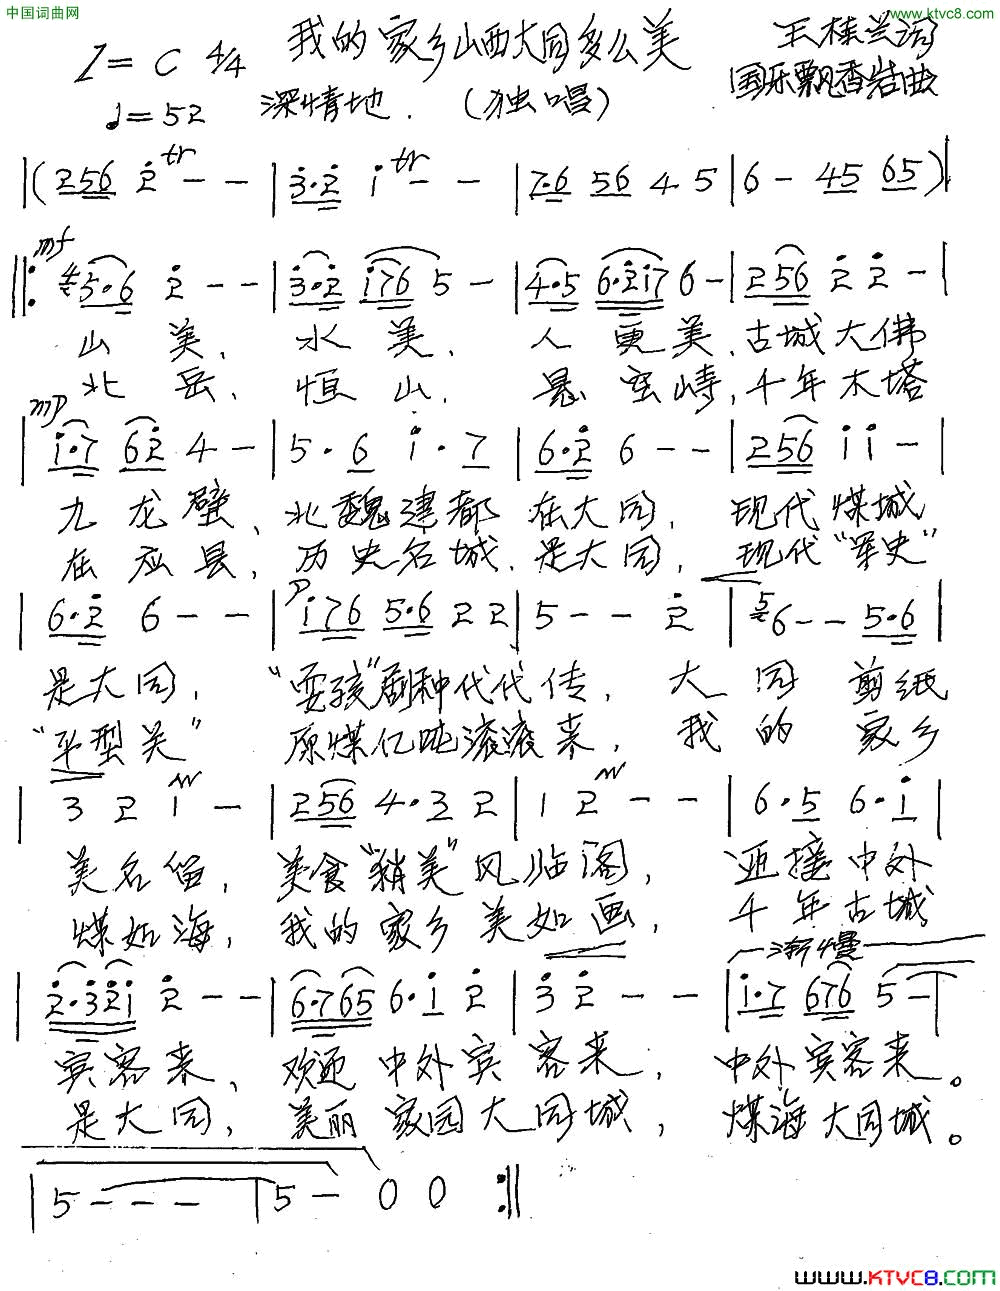 中国词曲网
www.ktvc8.com
我的家乡山西大同多么美
王桂兰词
1=C 4/4
国乐飘香岩曲
♩=52 深情地. (独唱)
|(256 2̇ tr - - |3̇·2̇ 1̇ tr - - |7·6 56 4 5|6 - 45 65)|
mf
‖: 5·6 2̇ - - |3̇·2̇ 1̇76 5 - |4·5 6·2̇1̇7 6 - |256 2̇ 2̇ - |
山美、水美、人更美,古城大佛
北岳、恒山、悬空寺,千年木塔
mp
|1̇·7 62̇ 4 - |5·6 1̇·7 |6·2̇ 6 - - |256 1̇ 1̇ - |
九龙壁、北魏建都在大同, 现代煤城
在应县, 历史名城是大同, 现代“军史”
|6·2̇ 6 - - |p 1̇76 5·6 2 2|5 - - 2̇ |6 - - 5·6 |
是大同, “耍孩”剧种代代传, 大同剪纸
“平型关” 原煤亿吨滚滚来, 我的家乡
|3 2 1 - - |256 4·3 2 |1 2 - - |6·5 6·1̇ |
美名留, 美食“稍美”风临阁, 迎接中外
煤如海, 我的家乡美如画, 千年古城
渐慢
|2̇·3̇2̇1̇ 2̇ - - |6·765 6·1̇ 2̇ |3̇ 2̇ - - |1̇·7 676 5 - |
宾客来、欢迎中外宾客来, 中外宾客来。
是大同, 美丽家园大同城, 煤海大同城。
|5 - - - |5 - 0 0 :‖
www.KTVC8.com